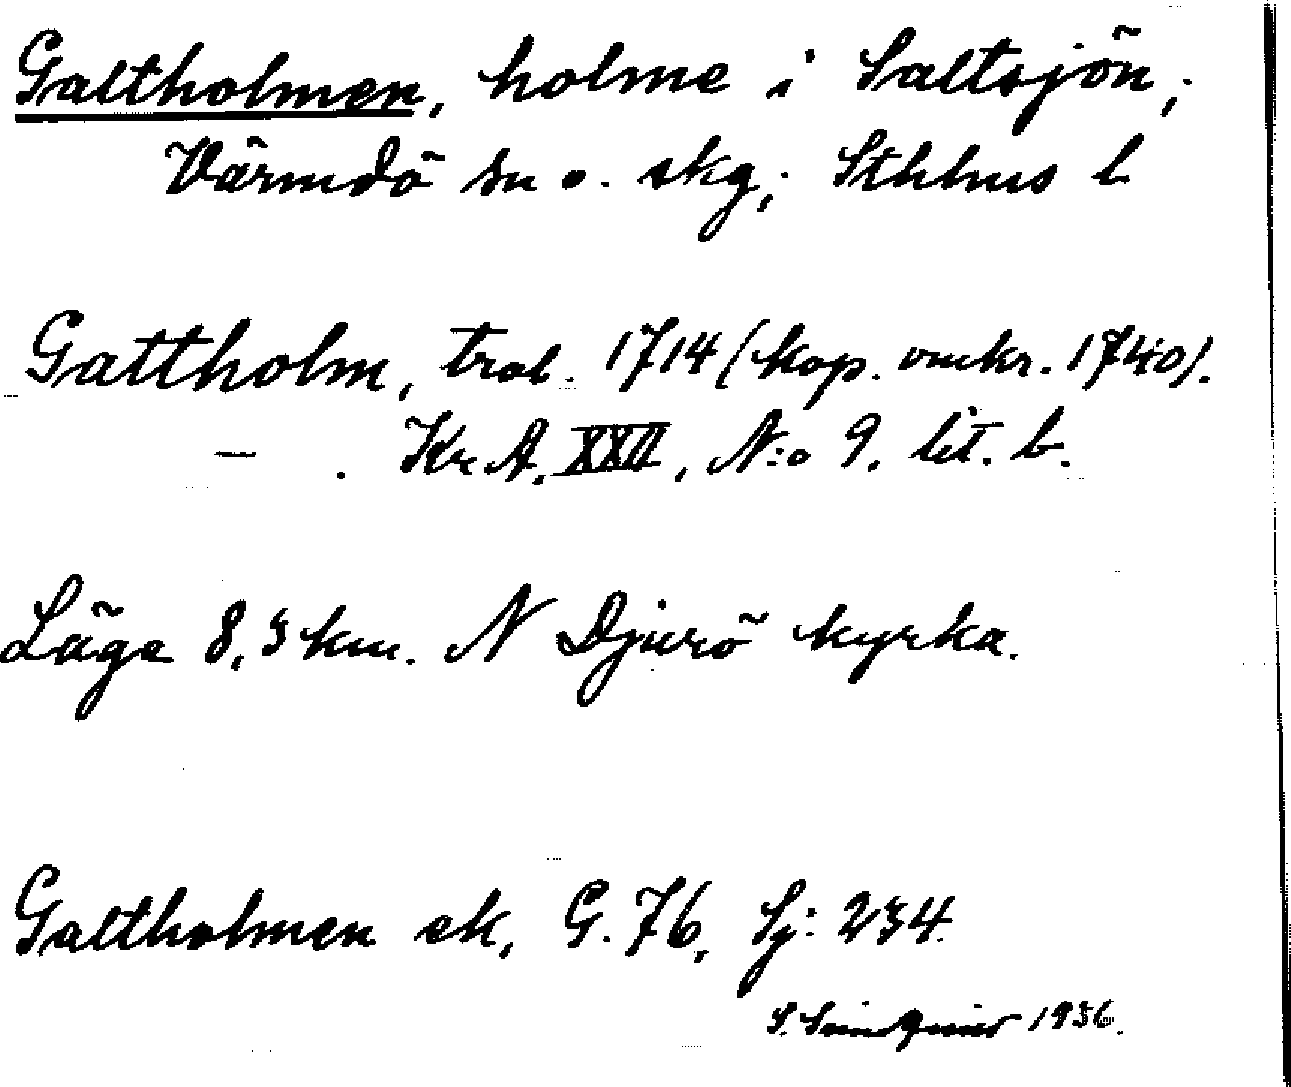 Galtholmen, holme i Saltsjön;
Värmdö sn o. skg; Sthhus l
Gattholm, trol. 1714 (kop. omkr. 1740).
— . Kr. A. XXII, N:o 9. lit. b.
Läge 8,3 km. N Djurö kyrka.
Galtholmen ek, G. 76, Sj: 234
S. 1936.